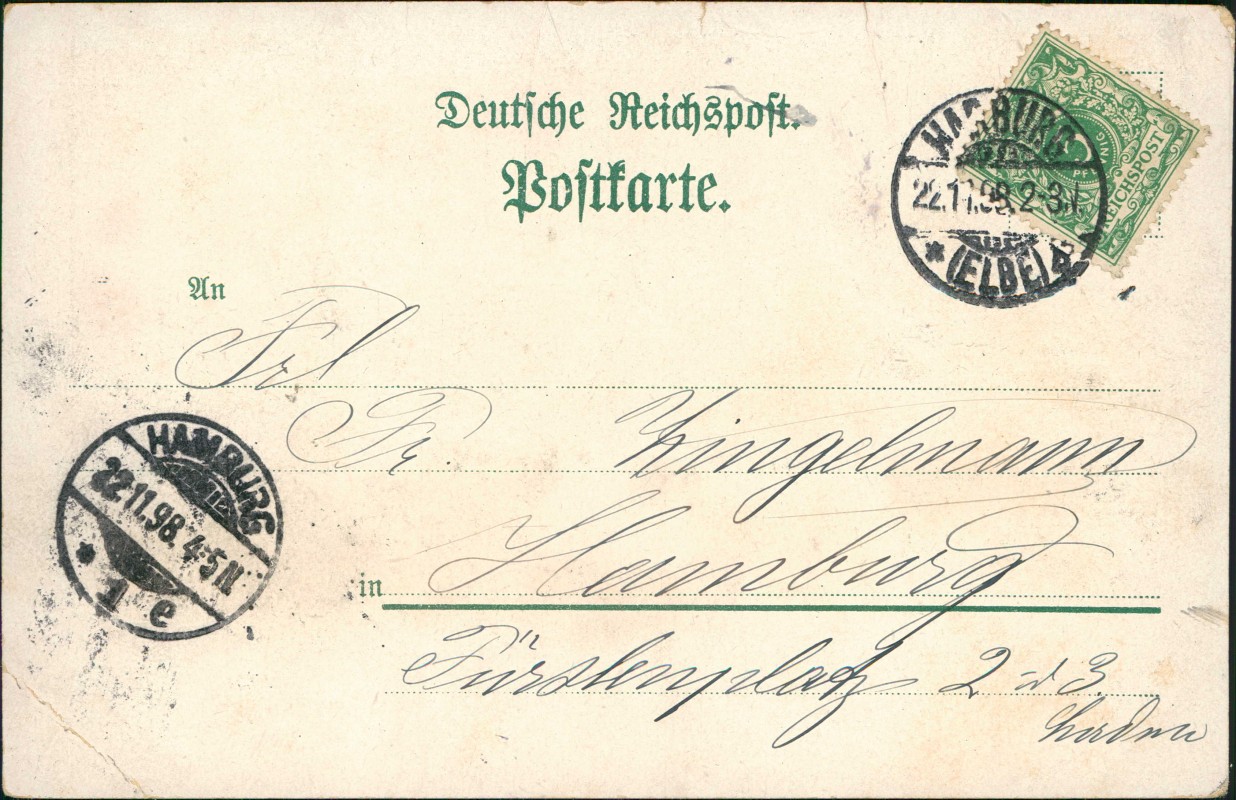 Deutsche Reichspost.
Postkarte.
HARBURG
22.11.98. 2-3.N.
* (ELBE) 4
REICHSPOST
An
Frl
Fr. Zingelmann
HAMBURG
22.11.98. 4-5 N
* 1 e
in Hamburg
Fürstenplatz 2 3
Laden